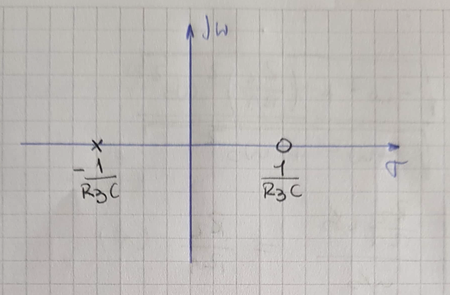 jω
× ○
-1/R3C 1/R3C σ